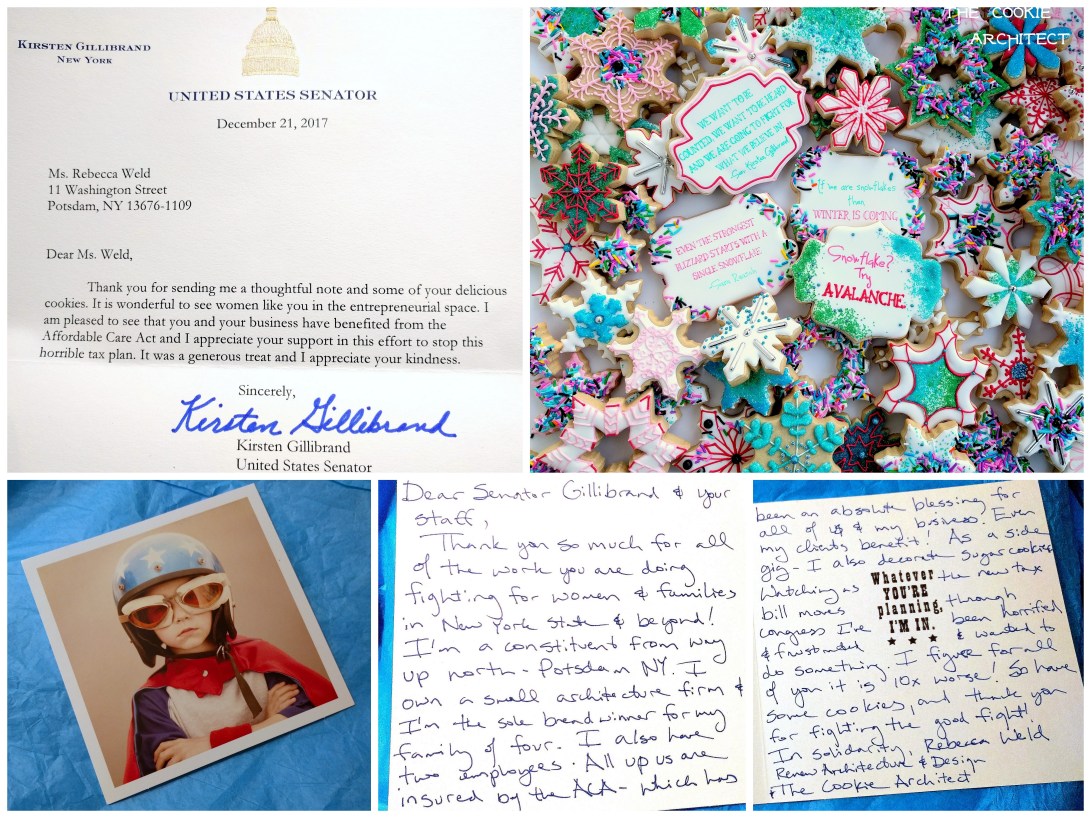 KIRSTEN GILLIBRAND
NEW YORK
UNITED STATES SENATOR
December 21, 2017
Ms. Rebecca Weld
11 Washington Street
Potsdam, NY 13676-1109
Dear Ms. Weld,
Thank you for sending me a thoughtful note and some of your delicious
cookies. It is wonderful to see women like you in the entrepreneurial space. I
am pleased to see that you and your business have benefited from the
Affordable Care Act and I appreciate your support in this effort to stop this
horrible tax plan. It was a generous treat and I appreciate your kindness.
Sincerely,
Kirsten Gillibrand
Kirsten Gillibrand
United States Senator
THE COOKIE
ARCHITECT
WE WANT TO BE
COUNTED, WE WANT TO BE HEARD
AND WE ARE GOING TO FIGHT FOR
WHAT WE BELIEVE IN!
Kirsten Gillibrand
If we are snowflakes
then
WINTER IS COMING
EVEN THE STRONGEST
BLIZZARD STARTS WITH A
SINGLE SNOWFLAKE
Snowflake?
Try
AVALANCHE.
Dear Senator Gillibrand & your
staff,
Thank you so much for all
of the work you are doing
fighting for women & families
in New York State & beyond!
I'm a constituent from way
up north - Potsdam NY. I
own a small architecture firm &
I'm the sole breadwinner for my
family of four. I also have
two employees. All up us are
insured by the ACA - which has
been an absolute blessing for
all of us & my business. Even
my clients benefit! As a side
gig - I also decorate sugar cookies
Watching as the new tax
bill moves through
congress I've been horrified
& frustrated & wanted to
do something. I figure for all
of you it is 10x worse! So have
some cookies, and thank you
for fighting the good fight!
In solidarity, Rebecca Weld
Renew Architecture & Design
& The Cookie Architect
Whatever
YOU'RE
planning,
I'M IN.